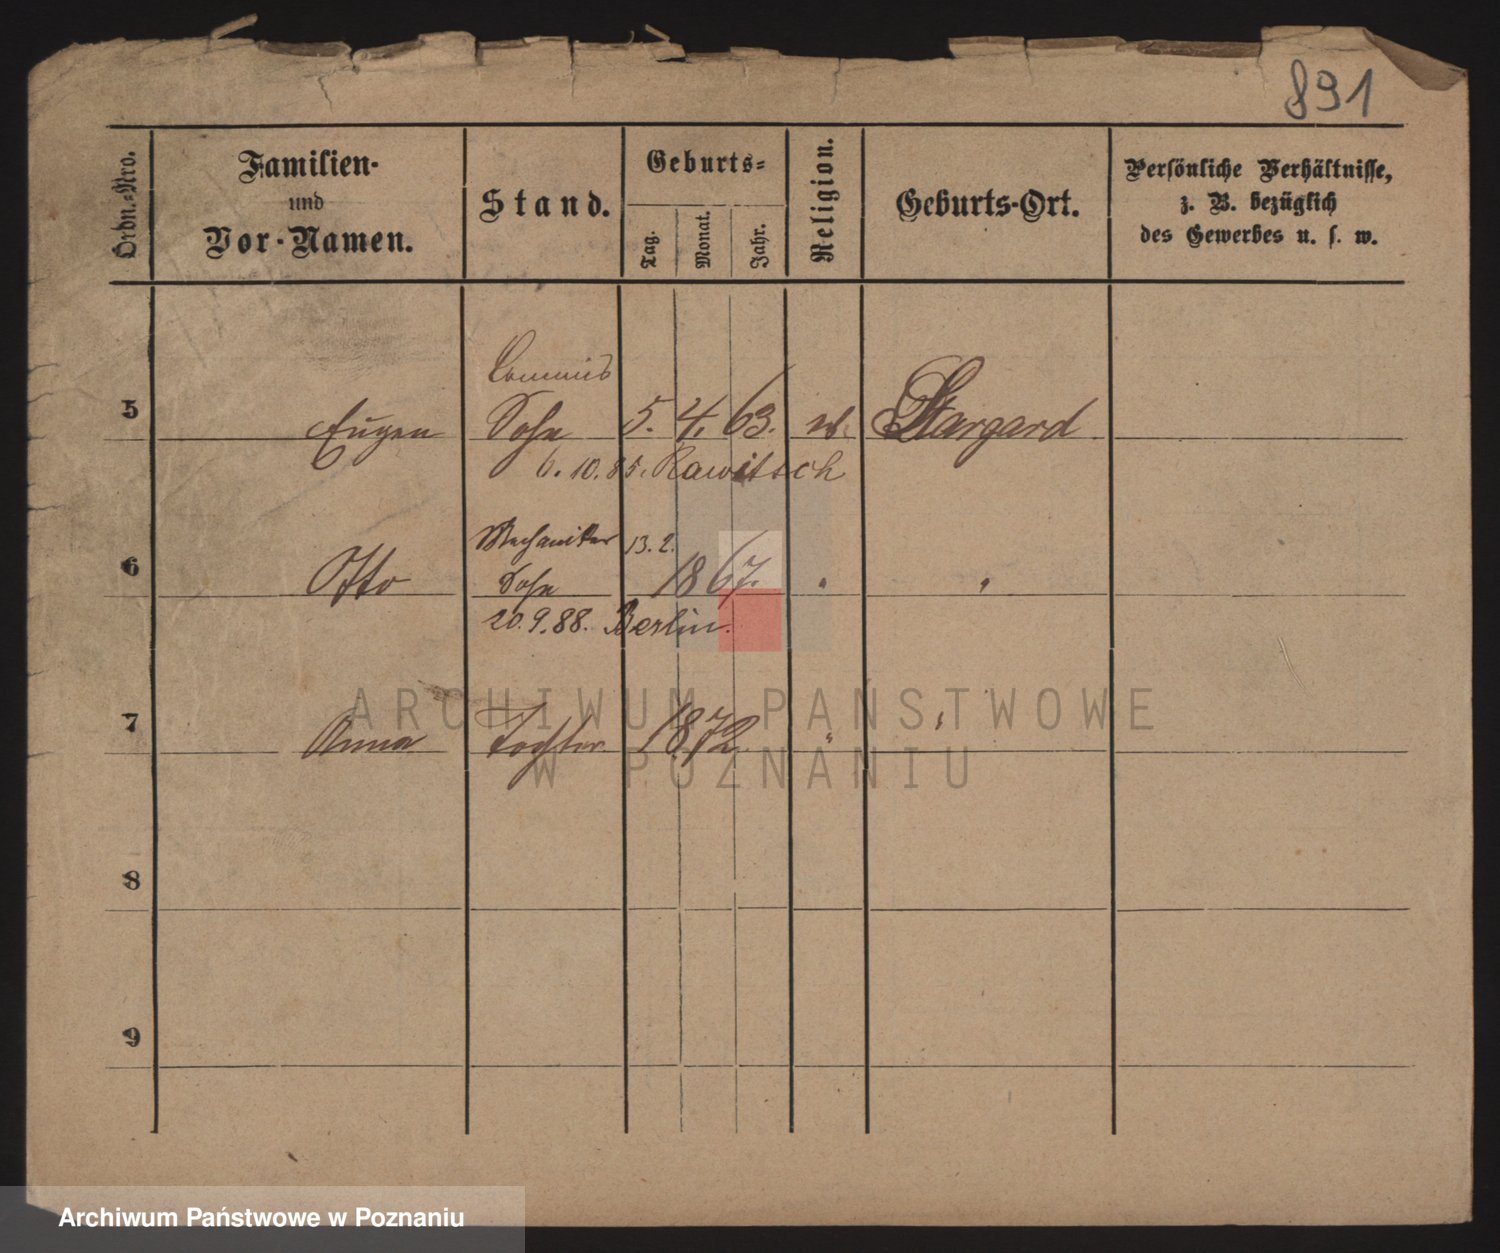 891
Ordn.-Nro.
Familien- und Vor-Namen.
Stand.
Geburts-
Tag. Monat. Jahr.
Religion.
Geburts-Ort.
Persönliche Verhältnisse,
z. B. bezüglich
des Gewerbes u. s. w.
Commis
5 Eugen Sohn 5. 4. 63. ev. Stargard
6. 10. 85. Rawitsch
Mechaniker 13. 2.
6 Otto Sohn 1867. " "
20. 9. 88. Berlin.
7 Anna Tochter 1872. " "
8
9
ARCHIWUM PAŃSTWOWE
W POZNANIU
Archiwum Państwowe w Poznaniu